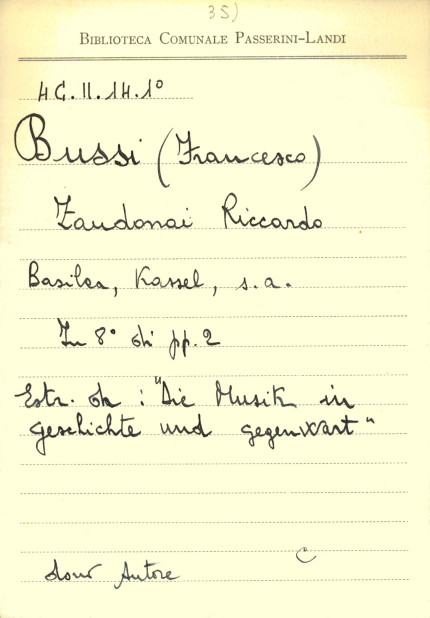 35)
BIBLIOTECA COMUNALE PASSERINI-LANDI
4G.II.14.1°
Bussi (Francesco)
Zandonai Riccardo
Basilea, Kassel, s.a.
In 8° di pp. 2
Estr. da : "Die Musik in
geschichte und gegenwart"
C
dono Autore